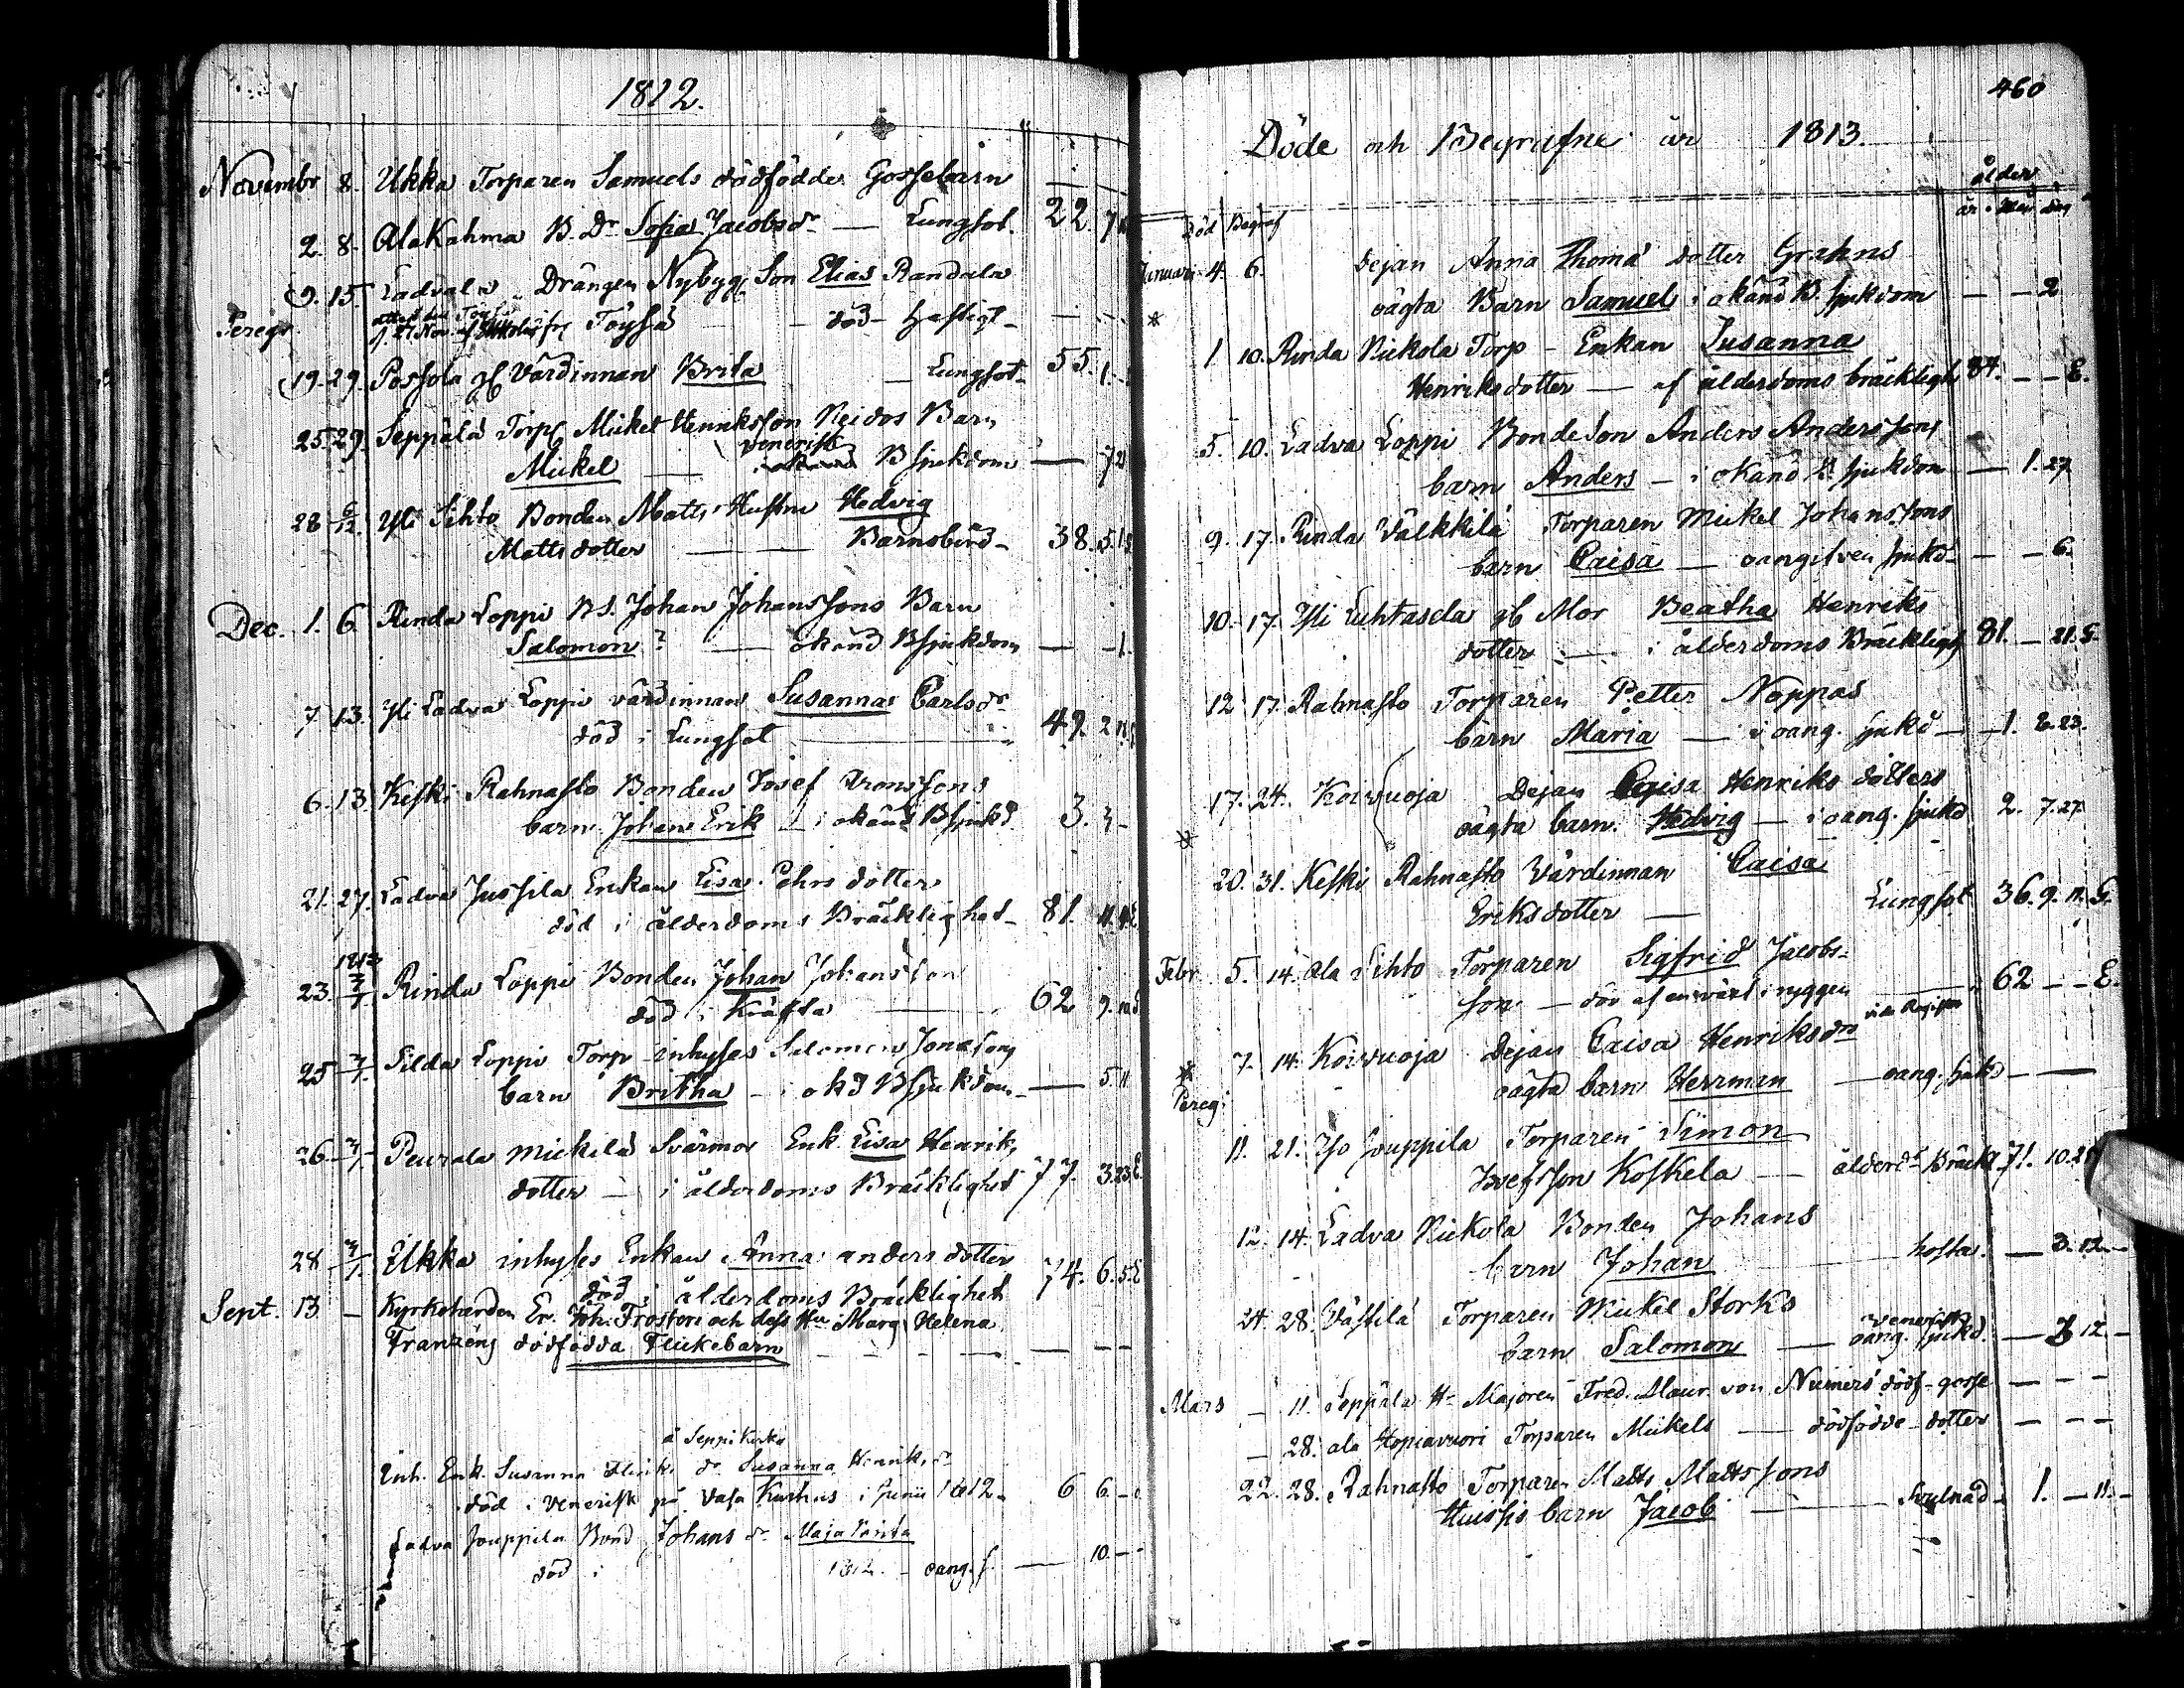 1812.
Novembr 8. Ukka Torparen Samuels dödfödde Gossebarn — —
2. 8. Ala Kahma B. Dr Sofia Jacobsdr — Lungsot. 22. 7
9. 15. Ladvala Drängen Nybygg. Son Elias Randala
Peregr. Töysä — död hastigt — — —
19. 29. Possola gl Värdinnan Brita — Lungsot 55. 1. -
25. 29. Seppälä Torp. Mickel Henriksson Neidos Barn
venerisk
Mickel — B sjukdom — 7 21
28 6/12. Yli Sihto Bonden Matts Hustru Hedvig
Matts dotter — Barnsbörd - 38. 5. 15
Dec. 1. 6. Rinda Loppi B.S. Johan Johanssons Barn
Salomon? — okänd B sjukdom — - 1.
7. 13. Yli Ladva Loppi värdinnan Susanna Carlsdr
död i Lungsot — 49. 2
6. 13. Keski Rahnasto Bonden Josef Aronssons
barn Johan Erik — i okänd B sjukd 3. 3 -
21. 27. Ladva Jussila Enkan Lisa Pehrs dotter
död i ålderdoms Bräcklighet - 81. 11.
1813
23. 3/1 Rinda Loppi Bonden Johan Johansson
död i Kräfta — 62 9.
25 3/1. Silda Loppi Torp inhyses Salomon Jonassons
barn Britha - i okd B sjukdom — 5 11
26. 3/1 Peurala Mickils Svärmor Enk. Lisa Henriks
dotter — i ålderdoms Bräcklighet 77. 3. 23 E
28 3/1. Ukka inhyses Enkan Anna anders dotter
död i ålderdoms Bräcklighet 74. 6. 5. E
Sept. 13 — Kyrkoherden Er. Joh: Frosteri och dess Hu Marg. Helena
Franzéns dödfödda Flickebarn — — — — — —
å Seppi Kuska
Inh. Enk. Susanna Henriks dr Susanna Henriksdr
död i Venerisk på Vasa Kurhus i Junii 1812 - 6 6. -
Ladva Jouppila Bond. Johans dr Maja Brita
död i 1812 - oang. s. — 10. - -
460
Döde och Begrafne år 1813.
ålder
Död Begraf år. Mån Dag
Januari 4. 6. Dejan Anna Thomä dotter Grahns
* oägta Barn Samuel i okänd B. sjukdom — - 2
1 10. Rinda Nickola Torp - Enkan Susanna
Henriksdotter — af ålderdoms bräckligh 84. - - E.
5. 10. Ladva Loppi BondeSon Anders Anderssons
barn Anders - i okänd B sjukdom — 1. 27
9. 17. Rinda Välkkilä Torparen Mickel Johanssons
barn Caisa — oangifven sjukd - — - 6.
10. 17. Yli Luhtasela gl Mor Beatha Henriks
dotter — i ålderdoms Bräckligh 81. - 21. E.
12 17. Rahnasto Torparen Petter Noppas
barn Maria — i oang. sjukd — - 1. 2. 23.
17. 24. Koivuoja Dejan Caisa Henriks dotters
* oägta barn. Hedvig — i oang. sjukd 2. 7. 27
20. 31. Keski Rahnasto Värdinnan Caisa
Eriksdotter — Lungsot 36. 9. 11. E.
Febr. 5. 14. Ala Sihto Torparen Sigfrid Jacobs-
son — död af en växt i ryggen — 62 - - E.
* 7. 14. Koivuoja Dejan Caisa Henriksdrs
Pereg: oägta barn Herrman — oang. sjukd — —
11. 21. Yli Jouppila Torparen Simon
Josefsson Koskela — ålderds Bräckl. 71. 10. 25
12. 14. Ladva Nickola Bonden Johans
barn Johan — hosta. — 3. 12. -
24. 28. Västilä Torparen Mickel Storks
venerisk
barn Salomon — oang. sjukd. — 3 12. -
Mars — 11. Seppälä Hr Majoren Fred. Maur. von Numers dödf. gosse — — —
— 28. ala Hopiavuori Torparen Mickels — dödfödde - dotter — — —
22. 28. Rahnasto Torparen Matts Mattssons
Huissis barn Jacob — Svulnad - 1. — 11. -